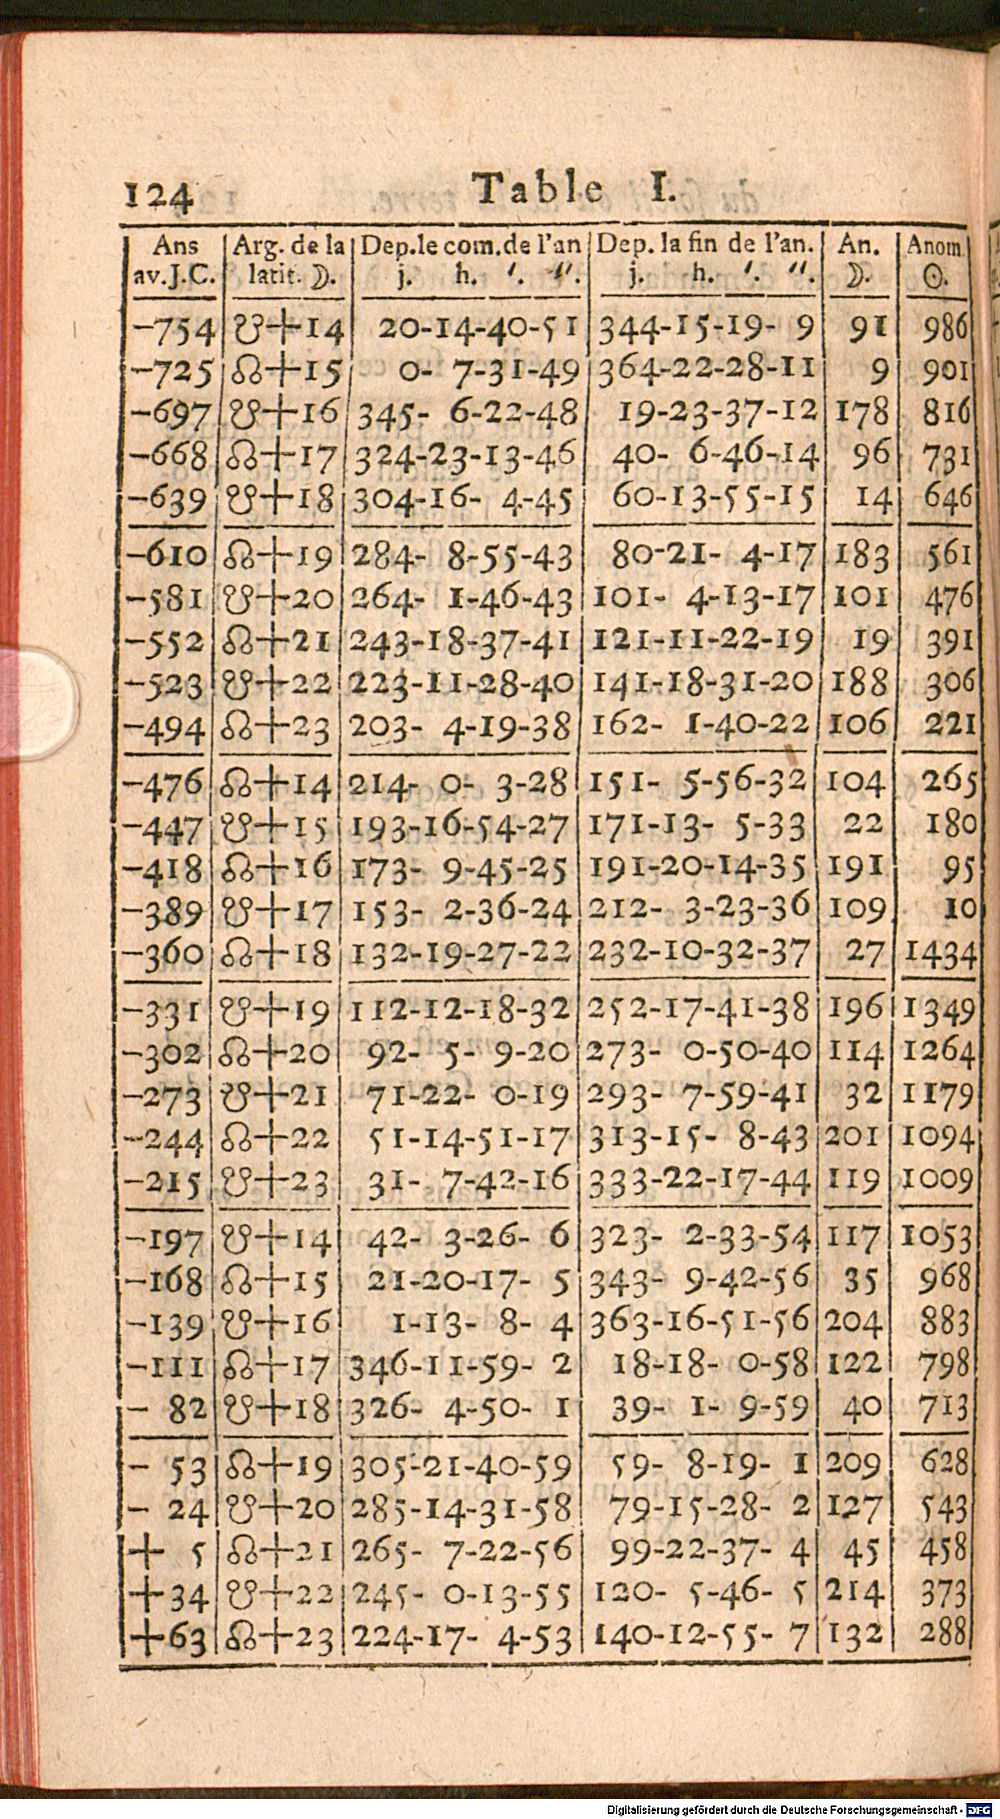 124 Table I.
Ans | Arg. de la | Dep. le com. de l'an | Dep. la fin de l'an. | An. | Anom.
av. J.C. | latit. ☽. | j. h. ′. ″. | j. h. ′. ″. | ☽. | ☉.
−754 | ☋+14 | 20-14-40-51 | 344-15-19- 9 | 91 | 986
−725 | ☊+15 | 0- 7-31-49 | 364-22-28-11 | 9 | 901
−697 | ☋+16 | 345- 6-22-48 | 19-23-37-12 | 178 | 816
−668 | ☊+17 | 324-23-13-46 | 40- 6-46-14 | 96 | 731
−639 | ☋+18 | 304-16- 4-45 | 60-13-55-15 | 14 | 646
−610 | ☊+19 | 284- 8-55-43 | 80-21- 4-17 | 183 | 561
−581 | ☋+20 | 264- 1-46-43 | 101- 4-13-17 | 101 | 476
−552 | ☊+21 | 243-18-37-41 | 121-11-22-19 | 19 | 391
−523 | ☋+22 | 223-11-28-40 | 141-18-31-20 | 188 | 306
−494 | ☊+23 | 203- 4-19-38 | 162- 1-40-22 | 106 | 221
−476 | ☊+14 | 214- 0- 3-28 | 151- 5-56-32 | 104 | 265
−447 | ☋+15 | 193-16-54-27 | 171-13- 5-33 | 22 | 180
−418 | ☊+16 | 173- 9-45-25 | 191-20-14-35 | 191 | 95
−389 | ☋+17 | 153- 2-36-24 | 212- 3-23-36 | 109 | 10
−360 | ☊+18 | 132-19-27-22 | 232-10-32-37 | 27 | 1434
−331 | ☋+19 | 112-12-18-32 | 252-17-41-38 | 196 | 1349
−302 | ☊+20 | 92- 5- 9-20 | 273- 0-50-40 | 114 | 1264
−273 | ☋+21 | 71-22- 0-19 | 293- 7-59-41 | 32 | 1179
−244 | ☊+22 | 51-14-51-17 | 313-15- 8-43 | 201 | 1094
−215 | ☋+23 | 31- 7-42-16 | 333-22-17-44 | 119 | 1009
−197 | ☋+14 | 42- 3-26- 6 | 323- 2-33-54 | 117 | 1053
−168 | ☊+15 | 21-20-17- 5 | 343- 9-42-56 | 35 | 968
−139 | ☋+16 | 1-13- 8- 4 | 363-16-51-56 | 204 | 883
−111 | ☊+17 | 346-11-59- 2 | 18-18- 0-58 | 122 | 798
− 82 | ☋+18 | 326- 4-50- 1 | 39- 1- 9-59 | 40 | 713
− 53 | ☊+19 | 305-21-40-59 | 59- 8-19- 1 | 209 | 628
− 24 | ☋+20 | 285-14-31-58 | 79-15-28- 2 | 127 | 543
+ 5 | ☊+21 | 265- 7-22-56 | 99-22-37- 4 | 45 | 458
+34 | ☋+22 | 245- 0-13-55 | 120- 5-46- 5 | 214 | 373
+63 | ☊+23 | 224-17- 4-53 | 140-12-55- 7 | 132 | 288
Digitalisierung gefördert durch die Deutsche Forschungsgemeinschaft - DFG